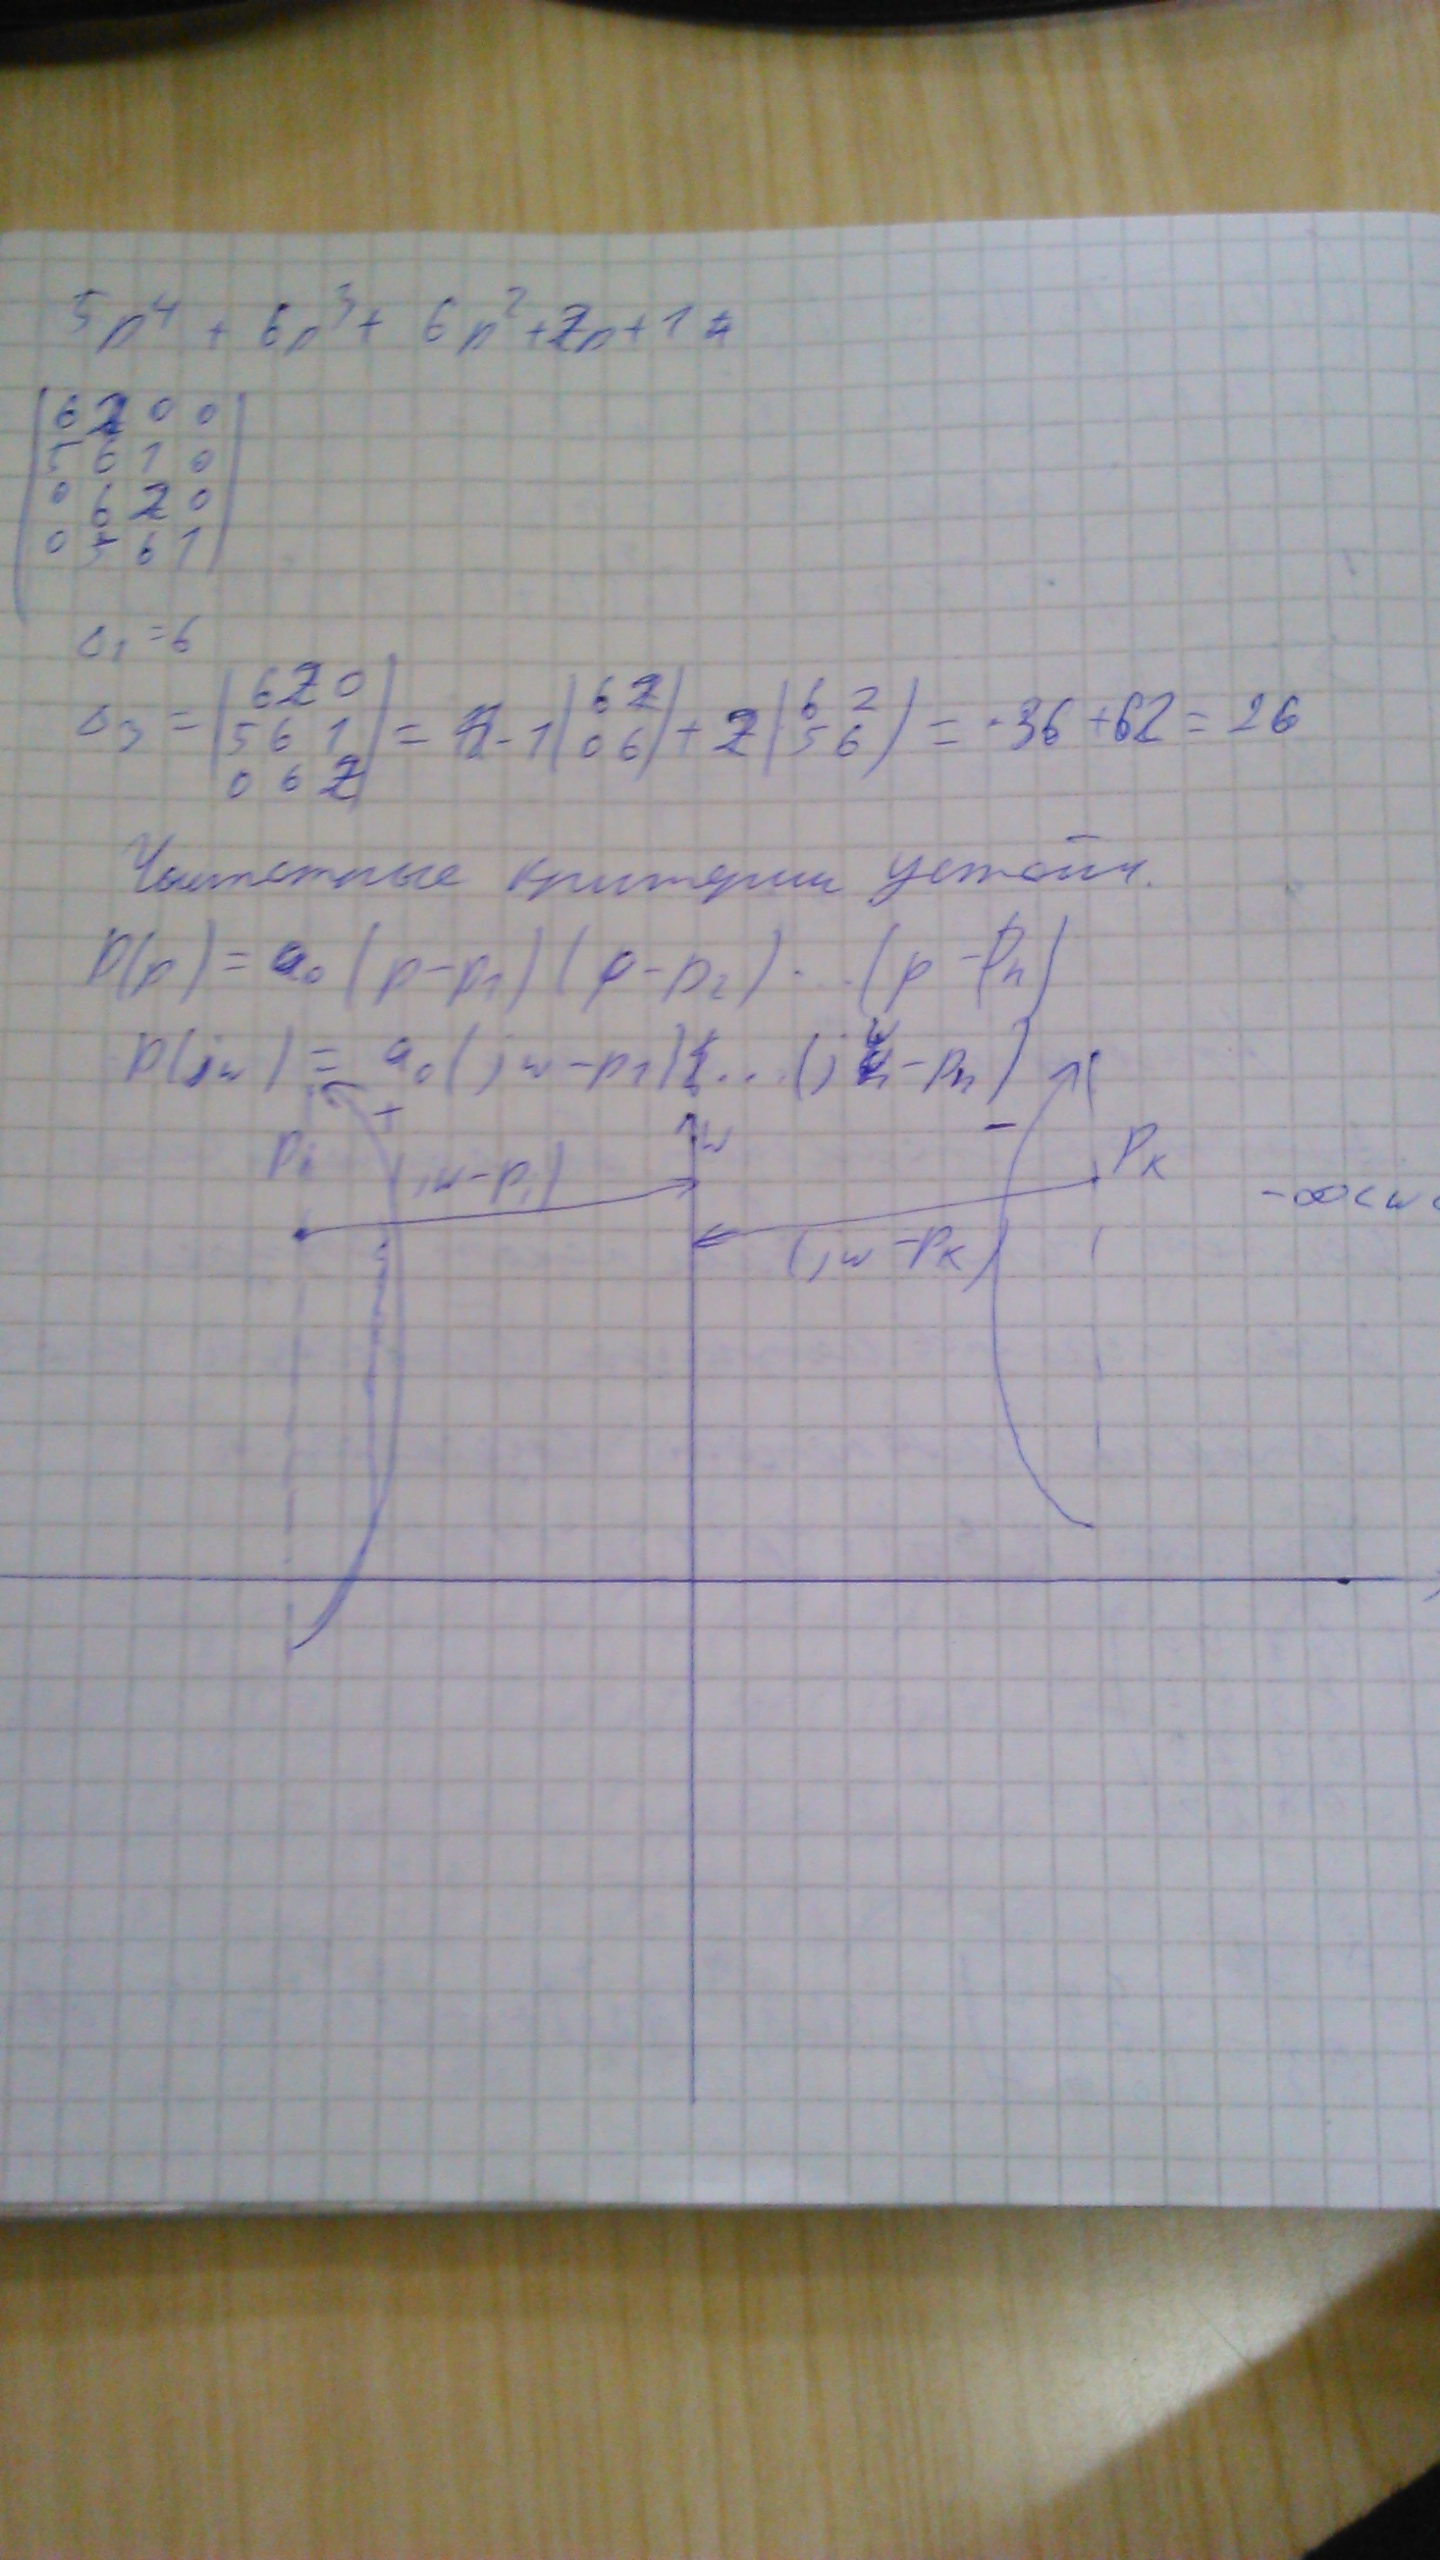 5p⁴ + 6p³ + 6p² + 2p + 1
6 2 0 0
5 6 1 0
0 6 2 0
0 5 6 1
Δ₁ = 6
Δ₃ = |6 2 0; 5 6 1; 0 6 2| = -1 |6 2; 0 6| + 2 |6 2; 5 6| = -36 + 62 = 26
критерии устойч.
D(p) = a₀ (p - p₁) (p - p₂) ... (p - pₙ)
D(jw) = a₀ (jw - p₁) ... (jw - pₙ)
+ w -
pᵢ (jw - pᵢ) pₖ
(jw - pₖ) -∞ < w <